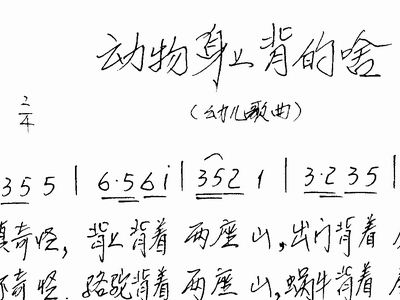 动物身上背的啥
(幼儿歌曲)
2/4
355 | 6·56i | 3521 | 3·235 |
真奇怪, 背上背着 两座山,出门背着
奇怪, 骆驼背着 两座山,蜗牛背着